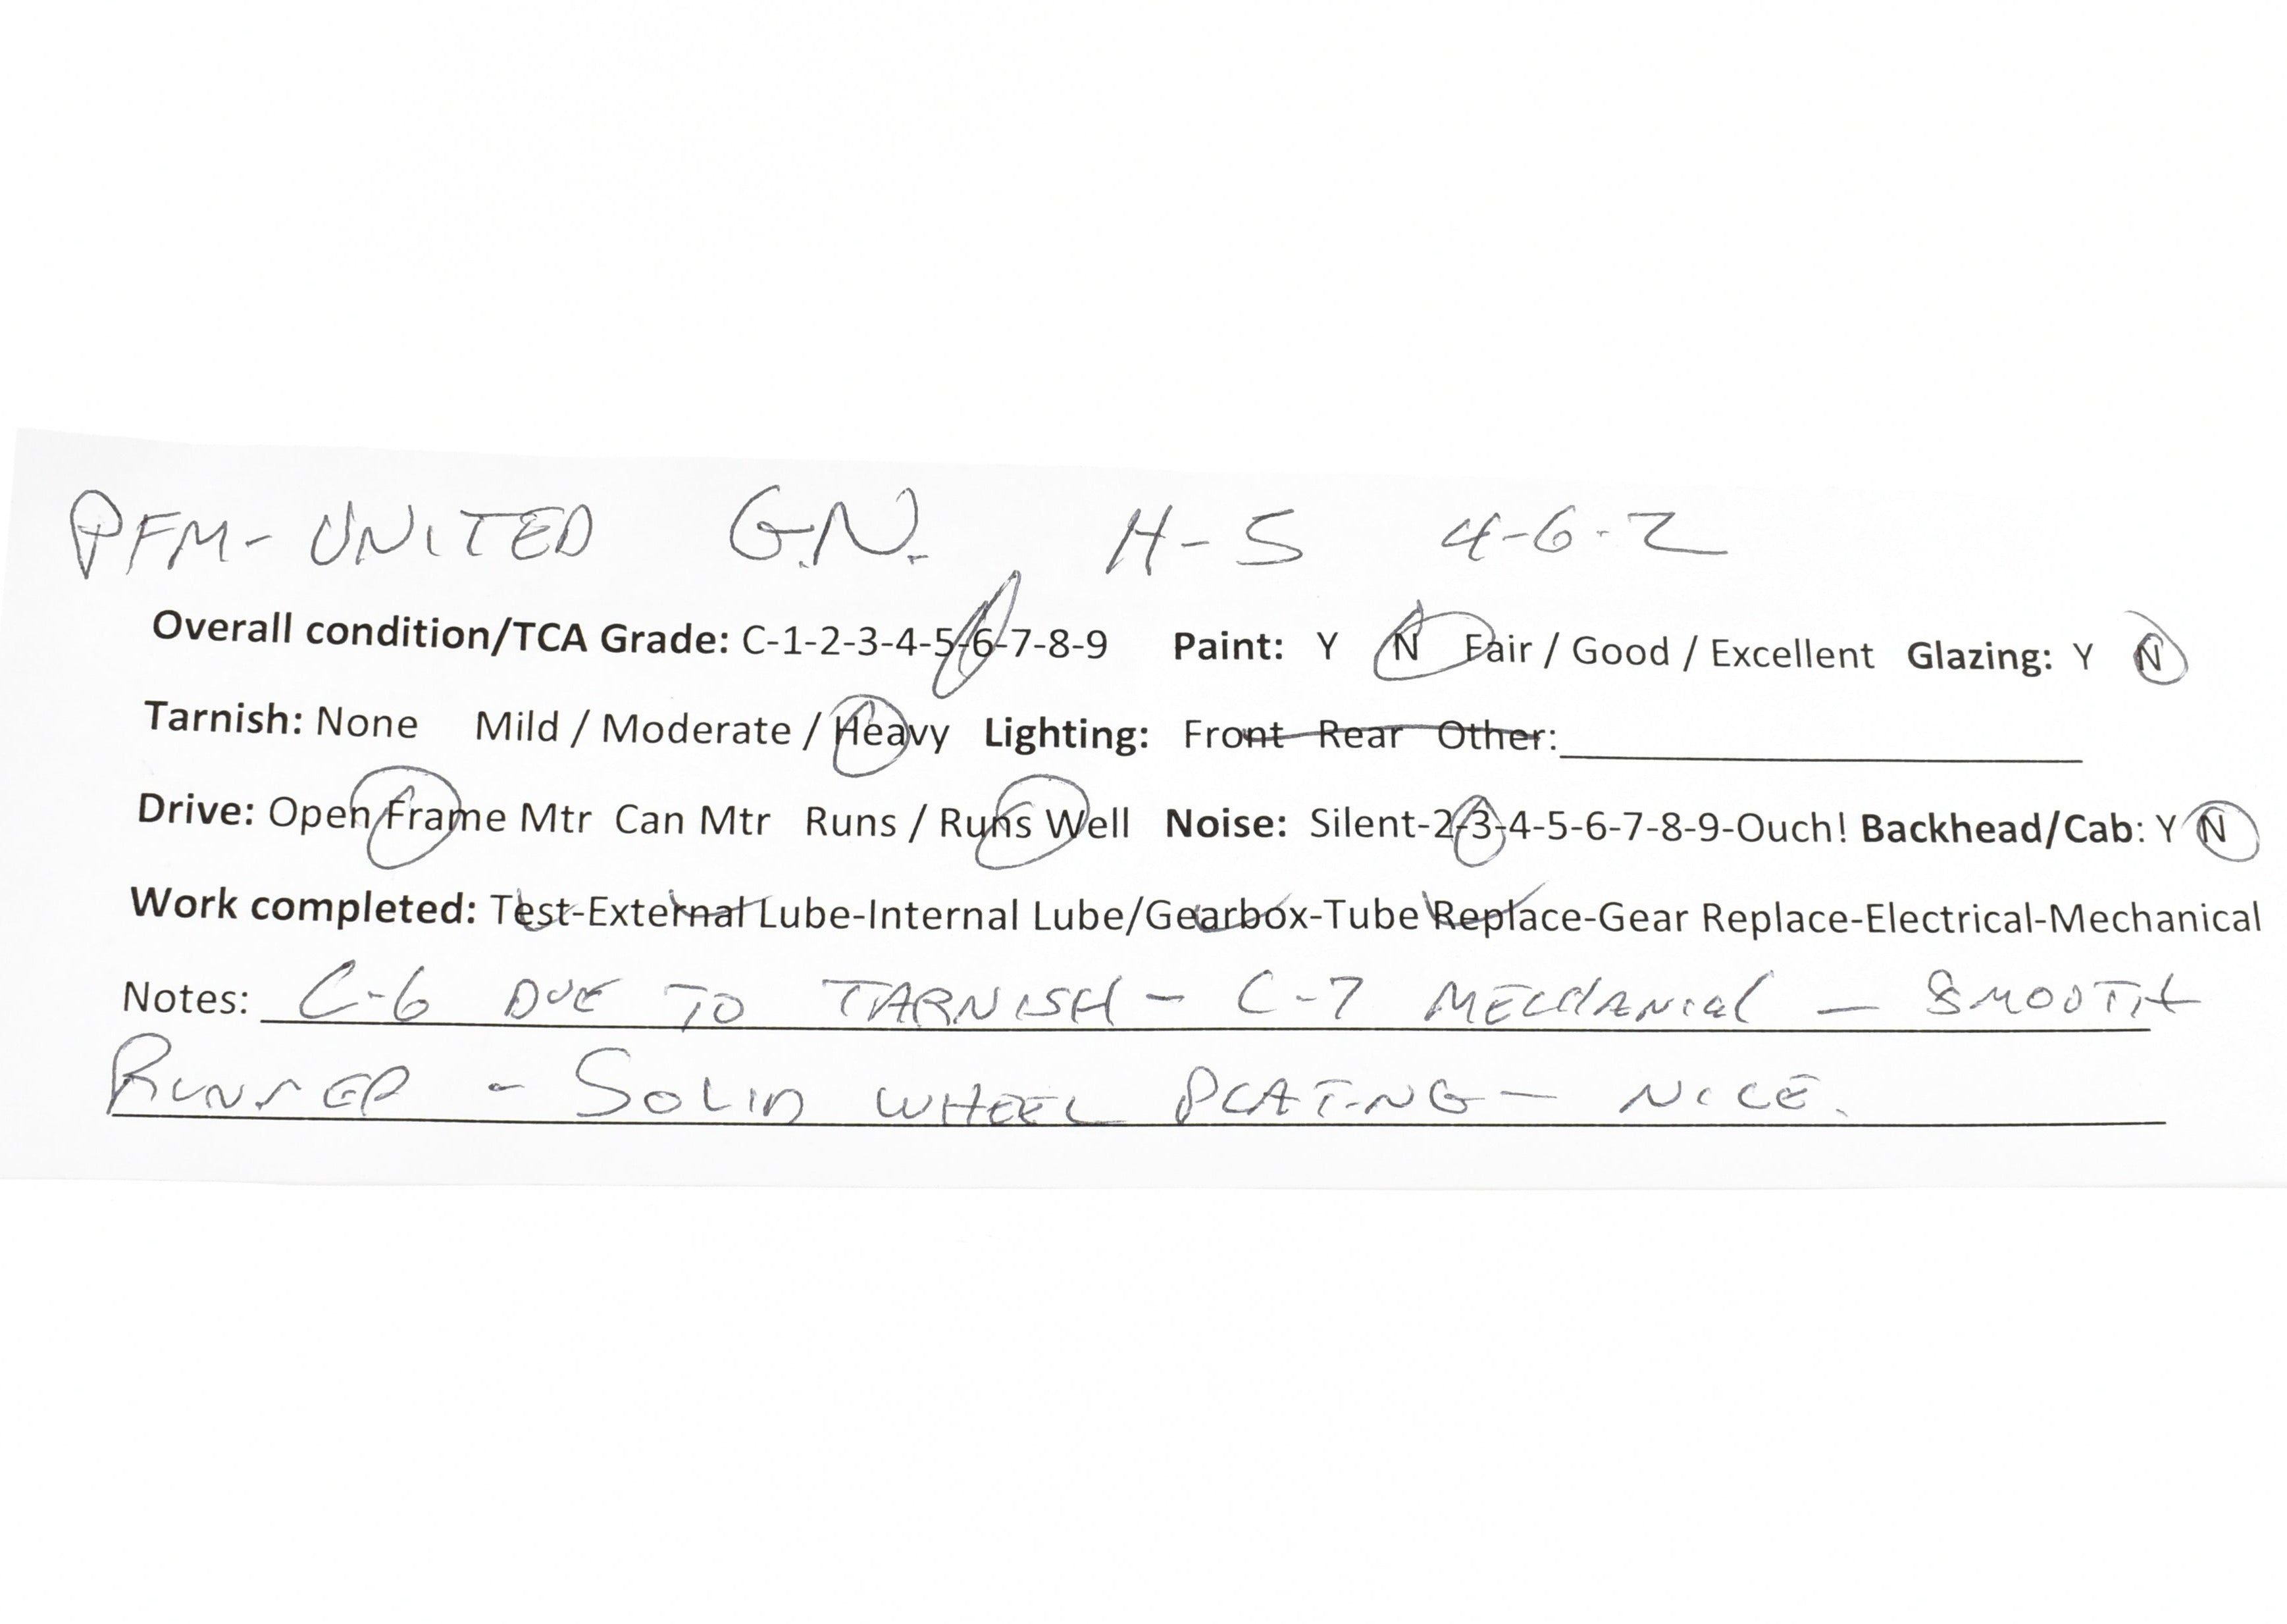 PFM-UNITED G.N. H-5 4-6-2
Overall condition/TCA Grade: C-1-2-3-4-5-6-7-8-9 Paint: Y N Fair / Good / Excellent Glazing: Y N
Tarnish: None Mild / Moderate / Heavy Lighting: Front Rear Other:
Drive: Open Frame Mtr Can Mtr Runs / Runs Well Noise: Silent-2-3-4-5-6-7-8-9-Ouch! Backhead/Cab: Y N
Work completed: Test-External Lube-Internal Lube/Gearbox-Tube Replace-Gear Replace-Electrical-Mechanical
Notes: C-6 DUE TO TARNISH - C-7 MECHANICAL - SMOOTH
RUNNER - SOLID WHEEL PLATING - NICE.